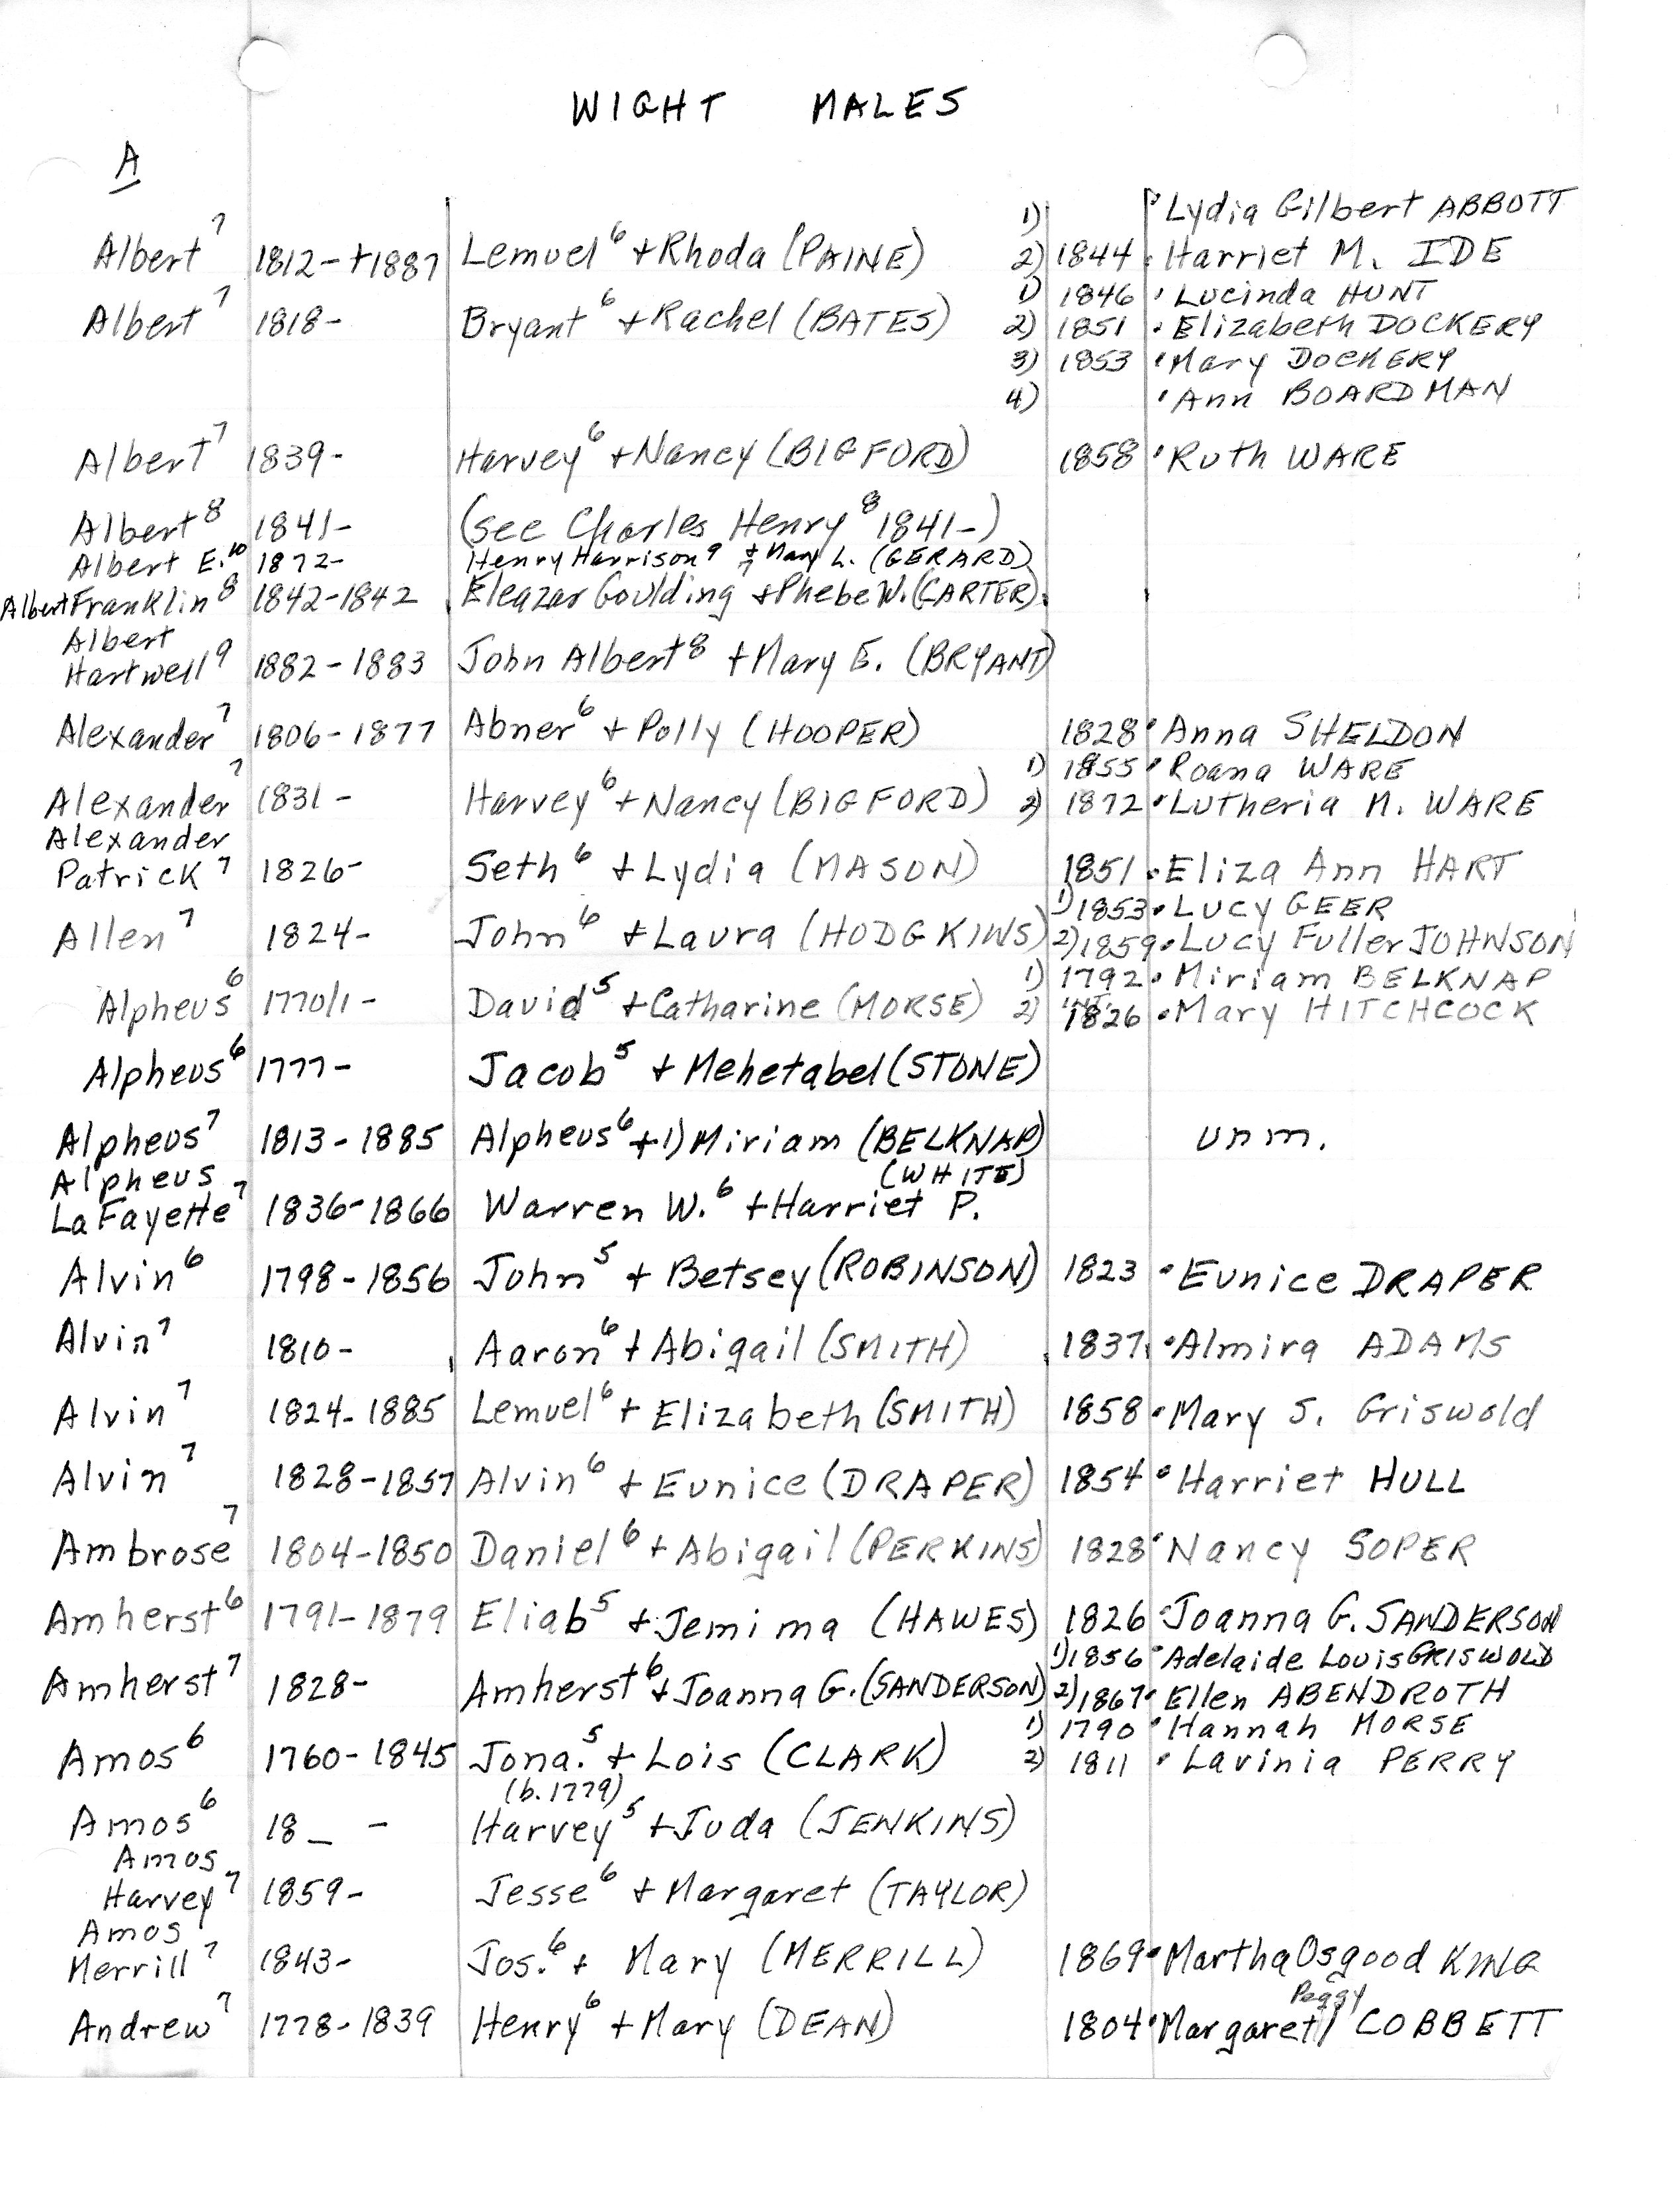 WIGHT MALES
A
1) Lydia Gilbert ABBOTT
Albert⁷ 1812-+1887 Lemuel⁶ + Rhoda (PAINE) 2) 1844 Harriet M. IDE
1) 1846 Lucinda HUNT
Albert⁷ 1818- Bryant⁶ + Rachel (BATES) 2) 1851 Elizabeth DOCKERY
3) 1853 Mary DOCKERY
4) Ann BOARDMAN
Albert⁷ 1839- Harvey⁶ + Nancy (BIGFORD) 1858 Ruth WARE
Albert⁸ 1841- (see Charles Henry⁸ 1841-)
Albert E.¹⁰ 1872- Henry Harrison⁹ + Mary L. (GERARD)
Albert Franklin⁸ 1842-1842 Eleazar Goulding + Phebe W. (CARTER)
Albert
Hartwell⁹ 1882-1883 John Albert⁸ + Mary E. (BRYANT)
Alexander⁷ 1806-1877 Abner⁶ + Polly (HOOPER) 1828 Anna SHELDON
1) 1855 Roana WARE
Alexander⁷ 1831- Harvey⁶ + Nancy (BIGFORD) 2) 1872 Lutheria M. WARE
Alexander
Patrick⁷ 1826- Seth⁶ + Lydia (MASON) 1851 Eliza Ann HART
1) 1853 Lucy GEER
Allen⁷ 1824- John⁶ + Laura (HODGKINS) 2) 1859 Lucy Fuller JOHNSON
1) 1792 Miriam BELKNAP
Alpheus⁶ 1770/1- David⁵ + Catharine (MORSE) 2) INT. 1826 Mary HITCHCOCK
Alpheus⁶ 1777- Jacob⁵ + Mehetabel (STONE)
Alpheus⁷ 1813-1885 Alpheus⁶ + 1) Miriam (BELKNAP) unm.
Alpheus (WHITE)
LaFayette⁷ 1836-1866 Warren W.⁶ + Harriet P.
Alvin⁶ 1798-1856 John⁵ + Betsey (ROBINSON) 1823 Eunice DRAPER
Alvin⁷ 1810- Aaron⁶ + Abigail (SMITH) 1837 Almira ADAMS
Alvin⁷ 1824-1885 Lemuel⁶ + Elizabeth (SMITH) 1858 Mary S. Griswold
Alvin⁷ 1828-1857 Alvin⁶ + Eunice (DRAPER) 1854 Harriet HULL
Ambrose⁷ 1804-1850 Daniel⁶ + Abigail (PERKINS) 1828 Nancy SOPER
Amherst⁶ 1791-1879 Eliab⁵ + Jemima (HAWES) 1826 Joanna G. SANDERSON
1) 1856 Adelaide Louis GRISWOLD
Amherst⁷ 1828- Amherst⁶ + Joanna G. (SANDERSON) 2) 1867 Ellen ABENDROTH
1) 1790 Hannah MORSE
Amos⁶ 1760-1845 Jona.⁵ + Lois (CLARK) 2) 1811 Lavinia PERRY
(b. 1779)
Amos⁶ 18_ - Harvey⁵ + Juda (JENKINS)
Amos
Harvey⁷ 1859- Jesse⁶ + Margaret (TAYLOR)
Amos
Merrill⁷ 1843- Jos.⁶ + Mary (MERRILL) 1869 Martha Osgood KING
Peggy
Andrew⁷ 1778-1839 Henry⁶ + Mary (DEAN) 1804 Margaret/ COBBETT